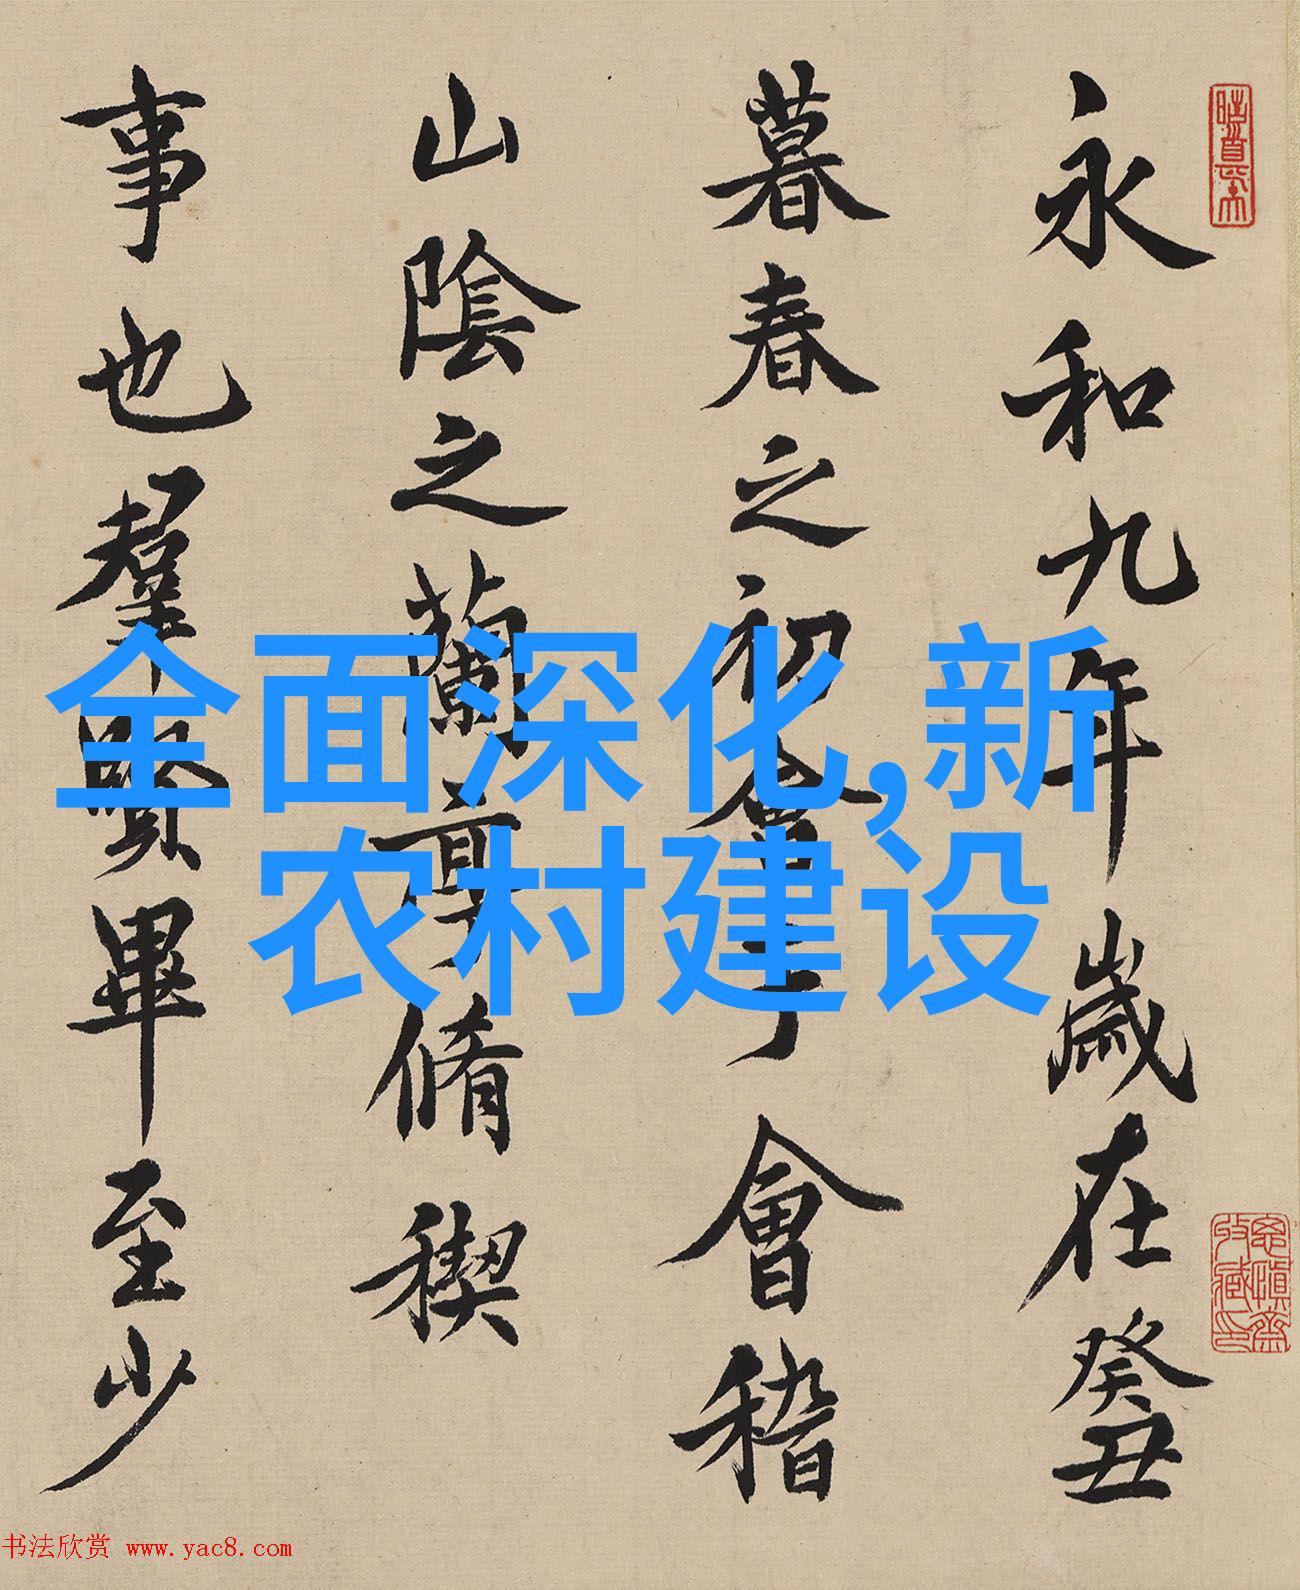 永和九年歲在癸丑
暮春之初會于會稽
山陰之蘭亭脩稧
事也羣賢畢至少
全面深化,新
农村建设
书法欣赏 www.yac8.com